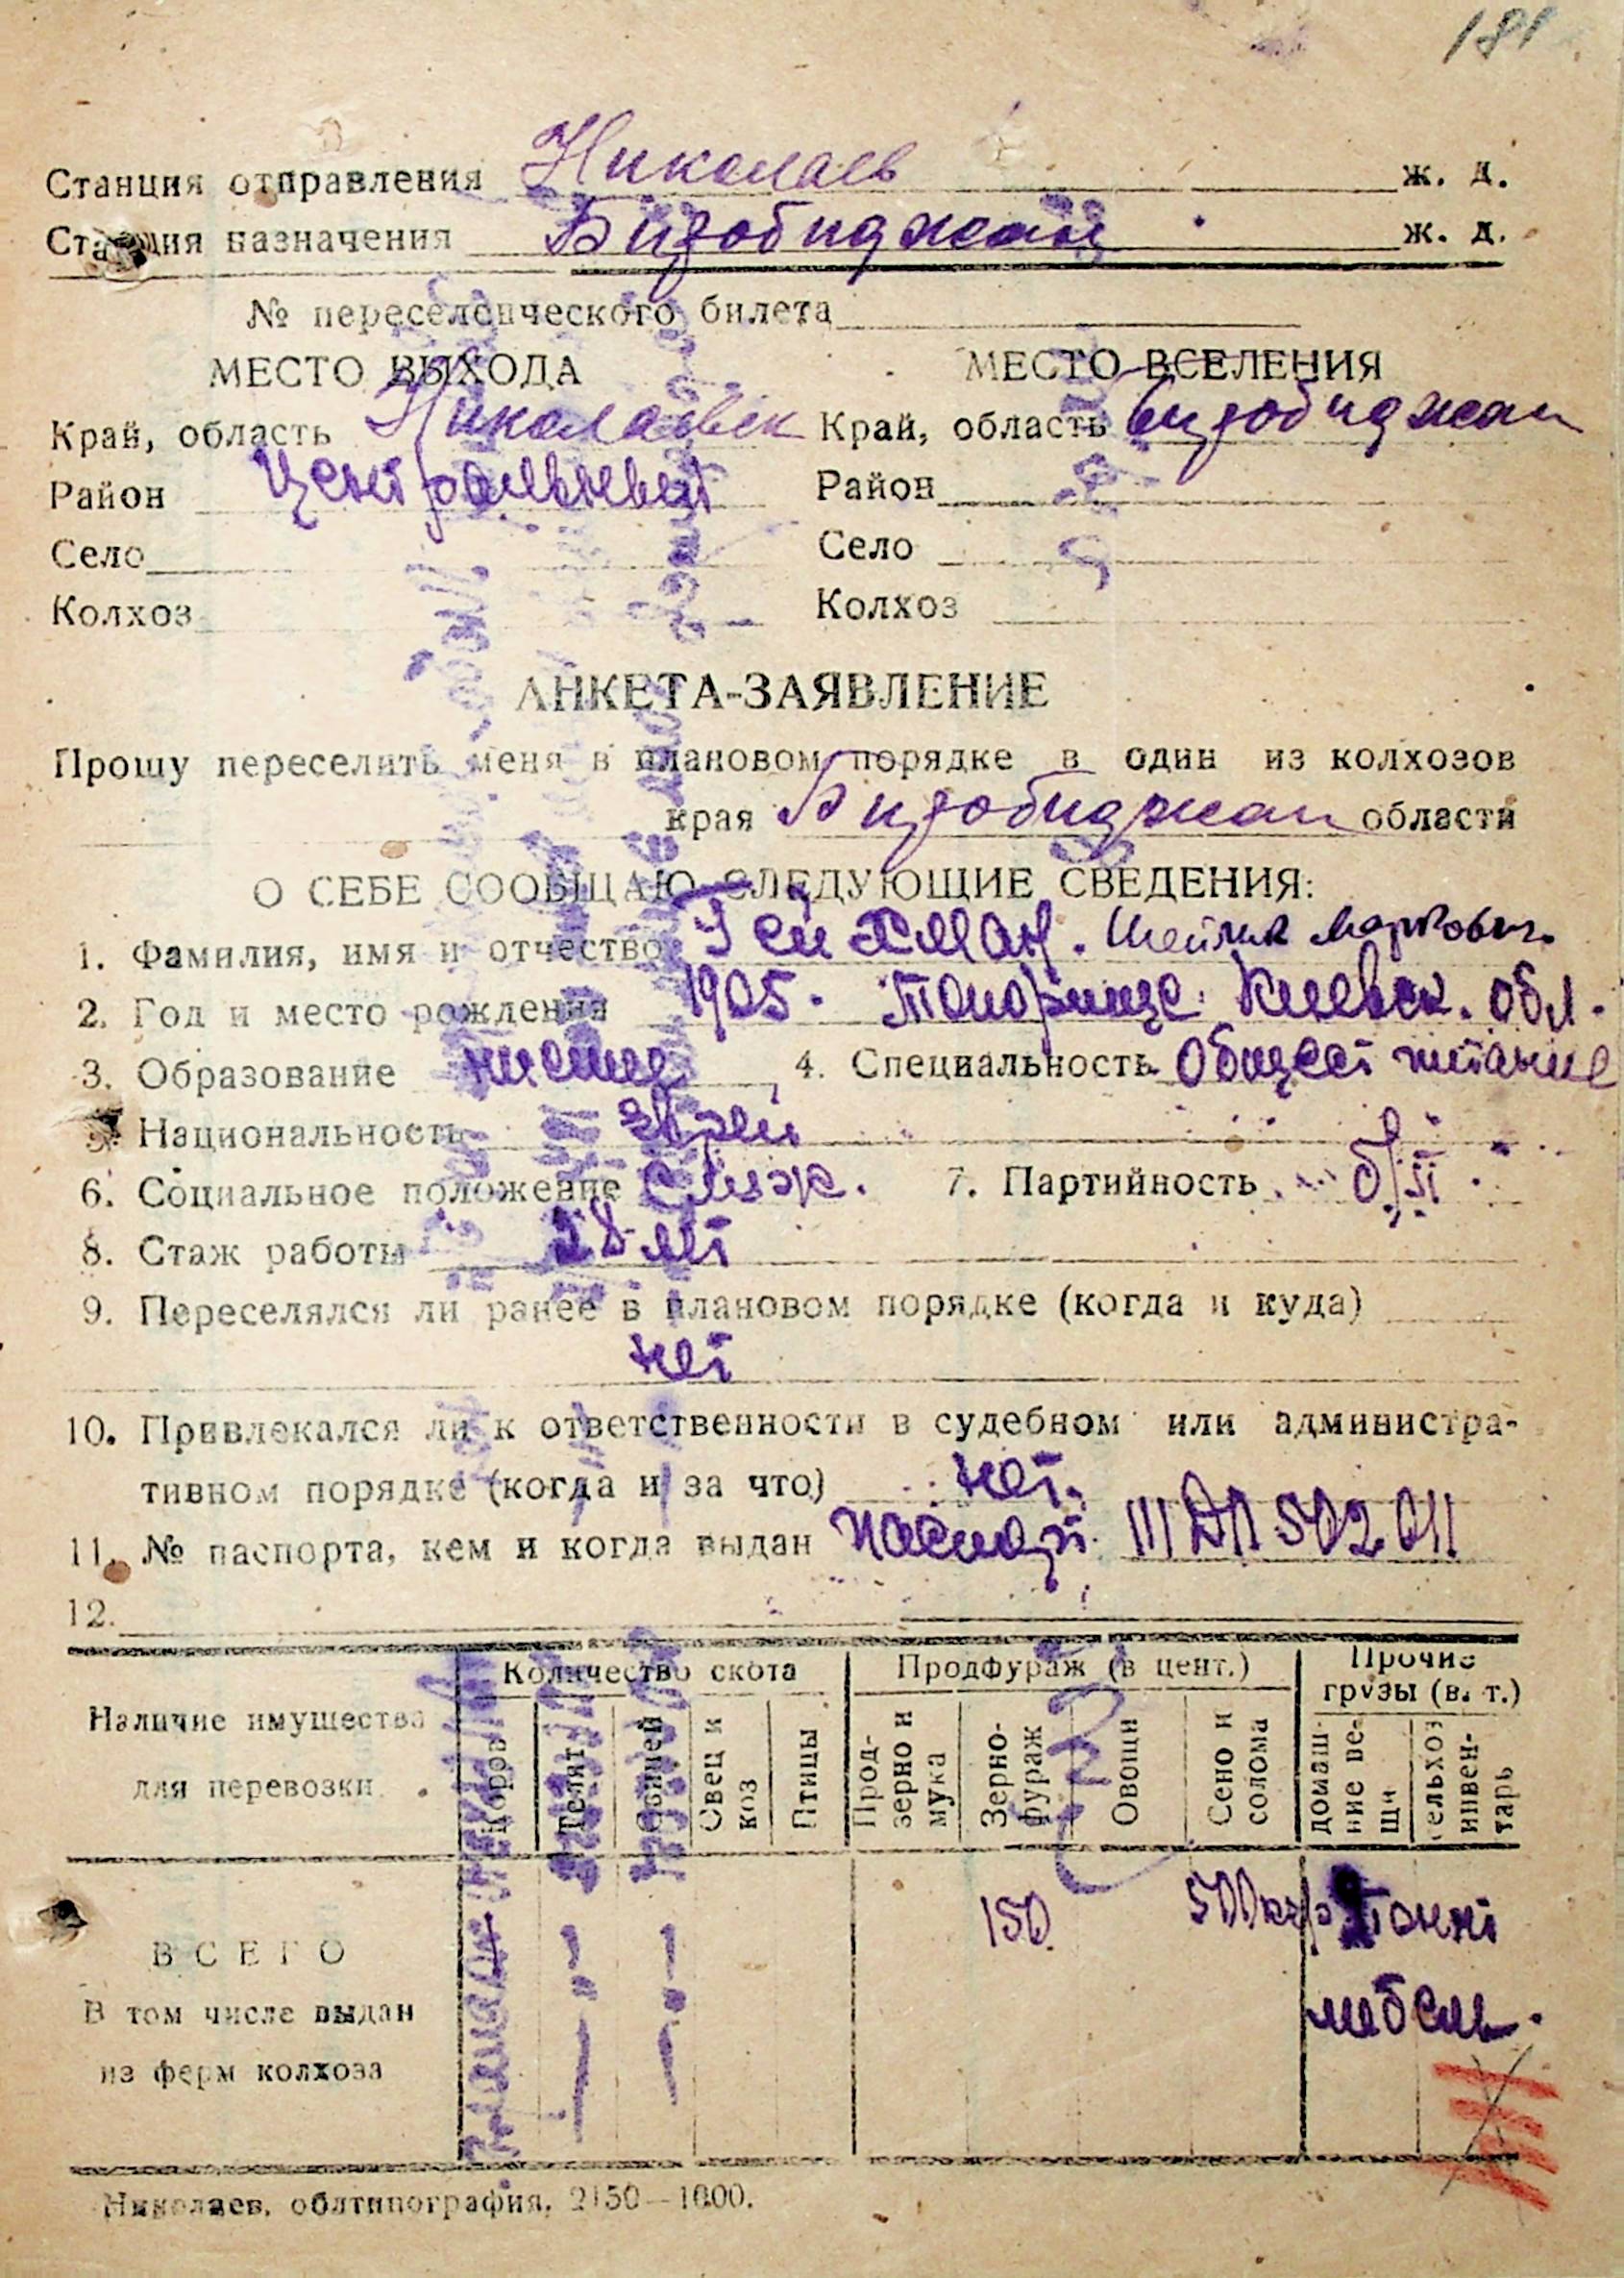 181
Станция отправления Николаев ж. д.
Станция назначения Биробиджан ж. д.
№ переселенческого билета
МЕСТО ВЫХОДА МЕСТО ВСЕЛЕНИЯ
Край, область Николаевск Край, область Биробиджан
Район Центральный Район
Село Село
Колхоз Колхоз
АНКЕТА-ЗАЯВЛЕНИЕ
Прошу переселить меня в плановом порядке в один из колхозов
края Биробиджан области
О СЕБЕ СООБЩАЮ СЛЕДУЮЩИЕ СВЕДЕНИЯ:
1. Фамилия, имя и отчество Гейхман. Шейлик Маркович.
2. Год и место рождения 1905. Топорище Киевск. обл.
3. Образование нисшее 4. Специальность Общест питание
5. Национальность Еврей
6. Социальное положение Служ. 7. Партийность б/п.
8. Стаж работы 28 лет
9. Переселялся ли ранее в плановом порядке (когда и куда)
нет
10. Привлекался ли к ответственности в судебном или администра-
тивном порядке (когда и за что) нет.
11. № паспорта, кем и когда выдан паспорт. III ДЛ 502011
12.
Наличие имущества для перевозки
Количество скота
Продфураж (в цент.)
Прочие грузы (в. т.)
Коров
Телят
Свиней
Овец и коз
Птицы
Прод-зерно и мука
Зерно-фураж
Овощи
Сено и солома
домаш-ние ве-щи
сельхоз инвен-тарь
ВСЕГО 150 500 тонн
В том числе выдан мебель.
из ферм колхоза
Николаев, облтипография, 2150—1000.